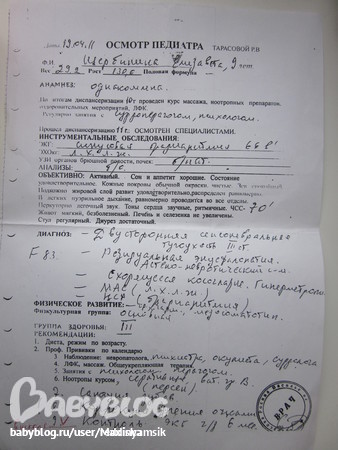 Дата 19.04.11 ОСМОТР ПЕДИАТРА ТАРАСОВОЙ Р.В
Ф.И. Щербинина Елизавета, 9 лет
Вес 29,2 Рост 130,6 Половая формула
АНАМНЕЗ:
По итогам диспансеризации 10г проведен курс массажа, ноотропных препаратов,
оздоровительных мероприятий, ЛФК.
Регулярно занятия с сурдопедагогом, психологом.
Процесс диспансеризации 11г. ОСМОТРЕН СПЕЦИАЛИСТАМИ.
ИНСТРУМЕНТАЛЬНЫЕ ОБСЛЕДОВАНИЯ:
ЭКГ: синусовая брадиаритмия 66
ЭХОКС: л.х.л.ж.
УЗИ органов брюшной полости, почек:
АНАЛИЗЫ: б/о
ОБЪЕКТИВНО: Активный. Сон и аппетит хорошие. Состояние
удовлетворительное. Кожные покровы обычной окраски, чистые. Зев спокойный.
Подкожно жировой слой развит удовлетворительно, распределен равномерно.
В легких пуэрильное дыхание, равномерно проводится во все отделы.
Перкуторно легочный звук. Тоны сердца звучные, ритмичные. ЧСС- 70'
Живот мягкий, безболезненный. Печень и селезенка не увеличены.
Стул регулярный. Диурез достаточный.
ДИАГНОЗ: - Двусторонняя сенсоневральная
тугоухость III ст
F 83. - Резидуальная энцефалопатия.
Астено-невротический с-м.
- Сходящееся косоглазие. Гиперметропия
- МАС (л.х.л.ж)
(брадиаритмия)
ФИЗИЧЕСКОЕ РАЗВИТИЕ: мезосоматотип.
Физкультурная группа: основная
ГРУППА ЗДОРОВЬЯ: III
1. Диета, режим по возрасту.
2. Проф. Прививки по календарю
3. Наблюдение: невропатолога, психиатра, окулиста, сурдолога
4. ЛФК, массаж. Общеукрепляющая терапия.
5. Занятия с психологом, педагогом.
6. Ноотропы курсом,
(персен)
Контроль ЭКГ 6 мес.
ВРАЧ
BABYBLOG
babyblog.ru/user/Maditamsik